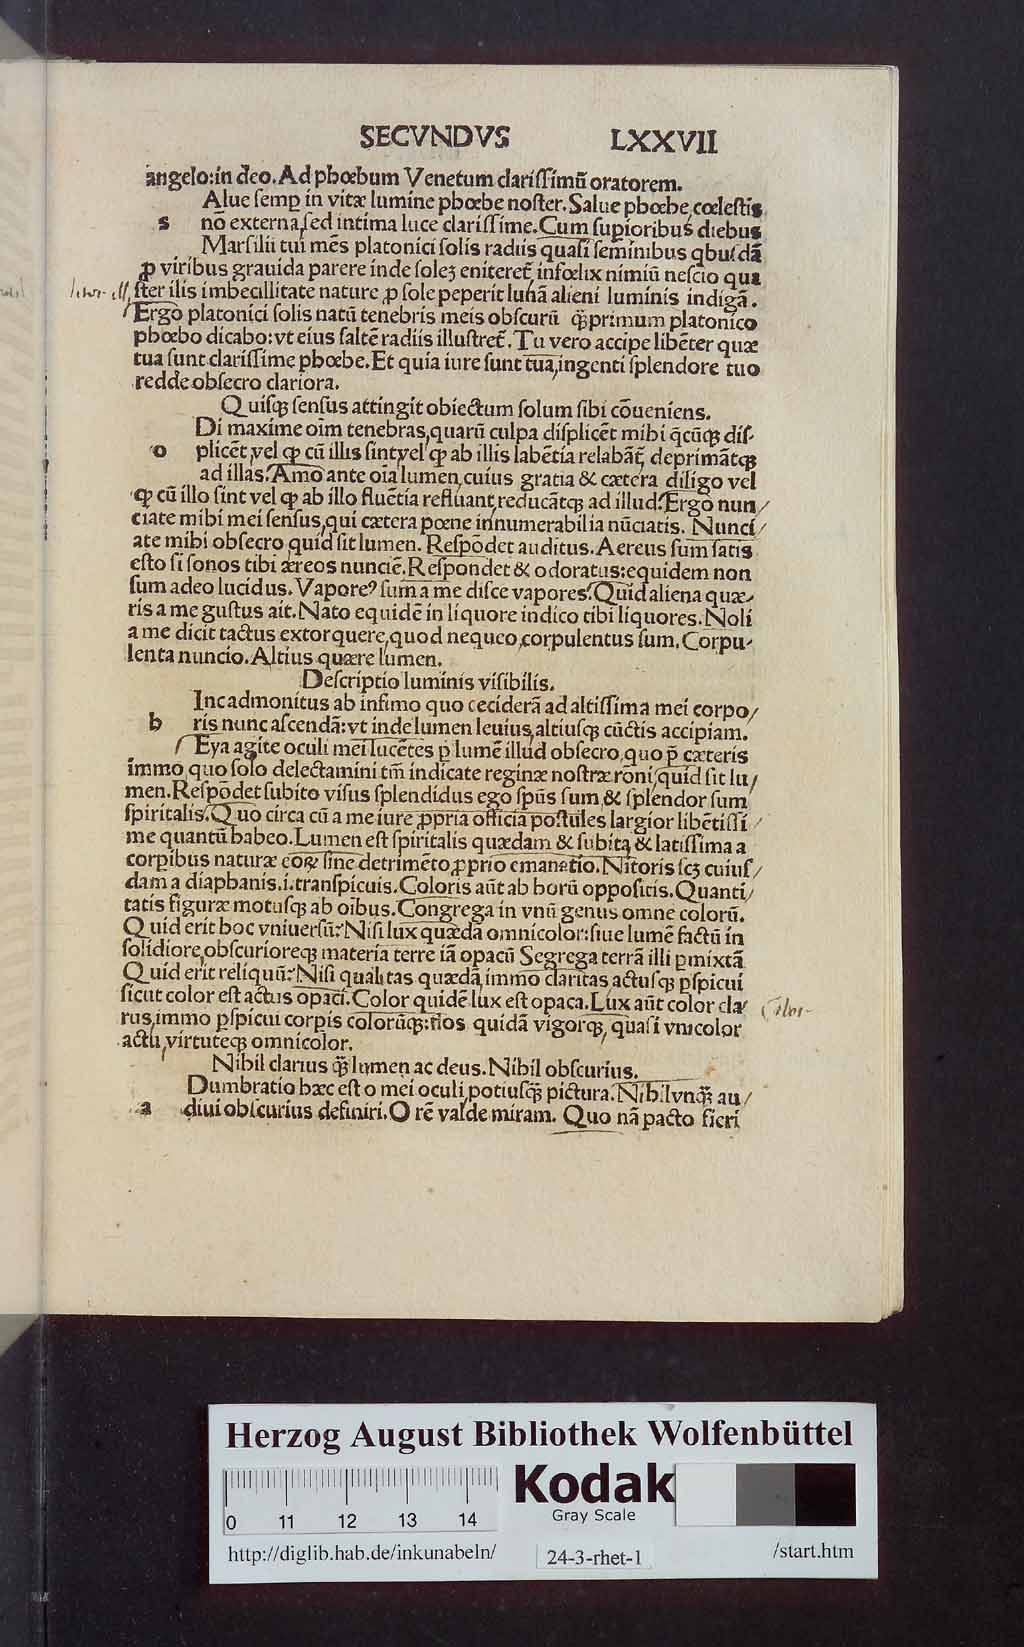 SECVNDVS LXXVII
angelo:in deo. Ad phœbum Venetum clarissimū oratorem.
Alue semꝑ in vitæ lumine phœbe noster. Salue phœbe, cœlestis
s nō externa, sed intima luce clarissime. Cum suꝑioribus diebus
Marsilii tui mēs platonici solis radiis quasi seminibus qbusdā
ꝓ viribus grauida parere inde solez eniteret̃, infœlix nimiū nescio qua
ster ilis imbecillitate nature ꝓ sole peperit lunā alieni luminis indigā.
Ergo platonici solis natū tenebris meis obscurū q̃primum platonico
phœbo dicabo: vt eius saltē radiis illustret̃. Tu vero accipe libēter quæ
tua sunt clarissime phœbe. Et quia iure sunt tua, ingenti splendore tuo
redde obsecro clariora.
Quisqꝫ sensus attingit obiectum solum sibi cōueniens.
Di maxime oīm tenebras, quarū culpa displicēt mihi q̄cūqꝫ dis-
o plicēt, vel ꝙ cū illis sint, vel ꝙ ab illis labētia relabāt̃, deprimātqꝫ
ad illas. Amo ante oīa lumen, cuius gratia & cætera diligo vel
ꝙ cū illo sint vel ꝙ ab illo fluētia refluant, reducātqꝫ ad illud. Ergo nun/
ciate mihi mei sensus, qui cætera pœne innumerabilia nūciatis. Nunci/
ate mihi obsecro quid sit lumen. Respōdet auditus. Aereus sum satis
esto si sonos tibi æreos nunciē. Respondet & odoratus: equidem non
sum adeo lucidus. Vaporeꝰ sum a me disce vapores. Quid aliena quæ-
ris a me gustus ait. Nato equidē in liquore indico tibi liquores. Noli
a me dicit tactus extorquere, quod nequeo, corpulentus sum. Corpu-
lenta nuncio. Altius quære lumen.
Descriptio luminis visibilis.
Inc admonitus ab infimo quo ceciderā ad altissima mei corpo/
h ris nunc ascendā: vt inde lumen leuius, altiusqꝫ cūctis accipiam.
Eya agite oculi mei lucētes ꝑ lumē illud obsecro, quo p̄ cæteris
immo quo solo delectamini tm̄ indicate reginæ nostræ rōni, quid sit lu/
men. Respōdet subito visus splendidus ego spūs sum, & splendor sum
spiritalis. Quo circa cū a me iure ꝓpria officia postules largior libētissi/
me quantū habeo. Lumen est spiritalis quædam & subita & latissima a
corꝑibus naturæ eoꝝ sine detrimēto ꝓprio emanatio. Nitoris scꝫ cuius/
dam a diaphanis.i.transpicuis. Coloris aūt ab horū oppositis. Quanti/
tatis figuræ motusqꝫ ab oībus. Congrega in vnū genus omne colorū.
Quid erit hoc vniuersū? Nisi lux quædā omnicolor: siue lumē factū in
solidiore, obscurioreqꝫ materia terre iā opacū Segrega terrā illi ꝑmixtā
Quid erit reliquū? Nisi qualitas quædā, immo claritas actusqꝫ ꝑspicui
sicut color est actus opaci. Color quidē lux est opaca. Lux aūt color cla/
rus, immo ꝑspicui corꝑis colorūqꝫ: flos quidā vigorqꝫ, quasi vnicolor
actu, virtuteqꝫ omnicolor.
Color
Nihil clarius q̃ lumen ac deus. Nihil obscurius.
Dumbratio hæc est o mei oculi, potiusq̃ pictura. Nihil vnq̃ au/
a diui obscurius definiri. O rē valde miram. Quo nā pacto fieri
Herzog August Bibliothek Wolfenbüttel
0 11 12 13 14
Kodak
Gray Scale
http://diglib.hab.de/inkunabeln/ 24-3-rhet-1 /start.htm